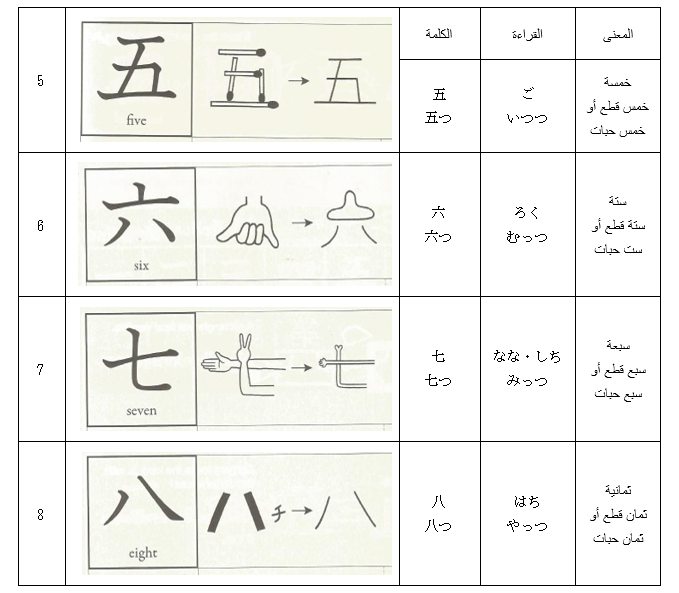 الكلمة القراءة المعنى
5 五 five 五 ご خمسة
五つ いつつ خمس قطع أو
خمس حبات
6 六 six 六 ろく ستة
六つ むっつ ستة قطع أو
ست حبات
7 七 seven 七 なな・しち سبعة
七つ みっつ سبع قطع أو
سبع حبات
8 八 eight ハチ 八 はち ثمانية
八つ やっつ ثمان قطع أو
ثمان حبات